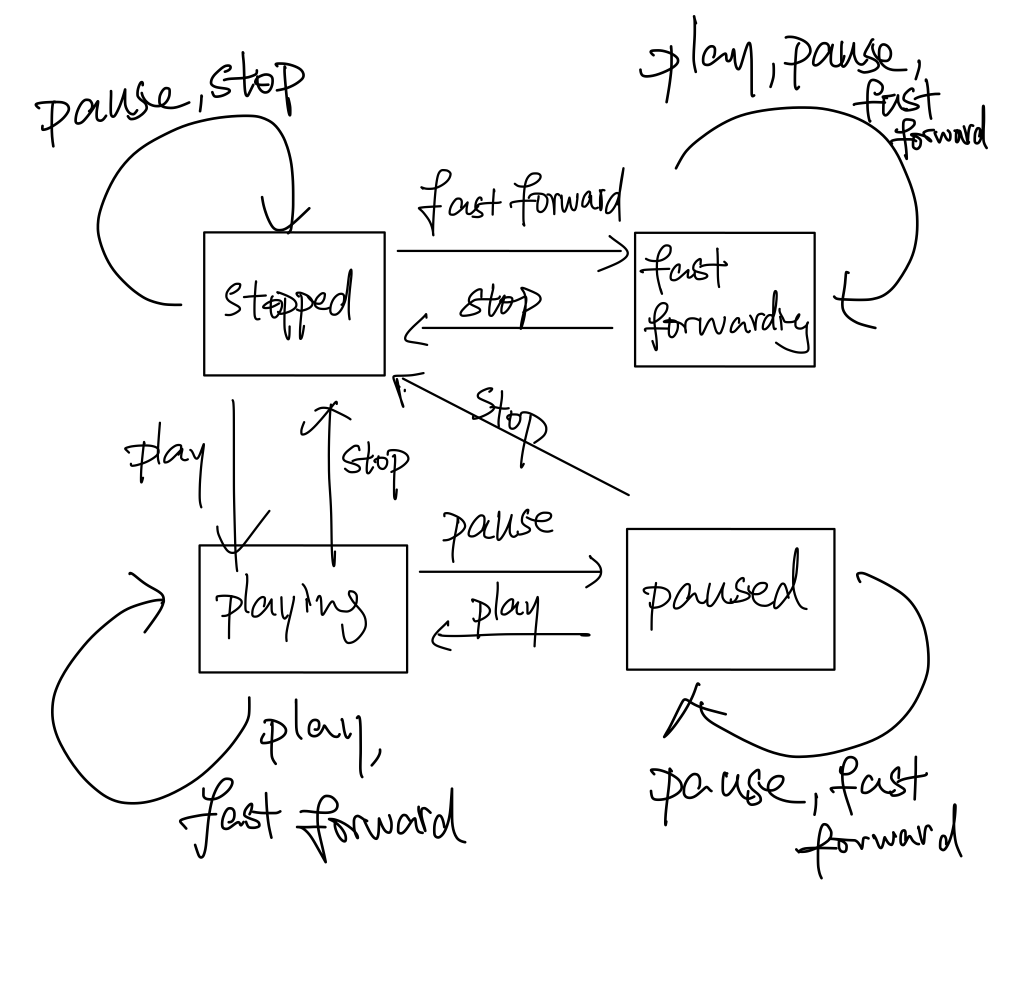 pause, stop
play, pause,
fast
forward
fast forward
stopped
stop
fast
forwarding
play
stop
stop
pause
playing
play
paused
play,
fast forward
pause, fast
forward